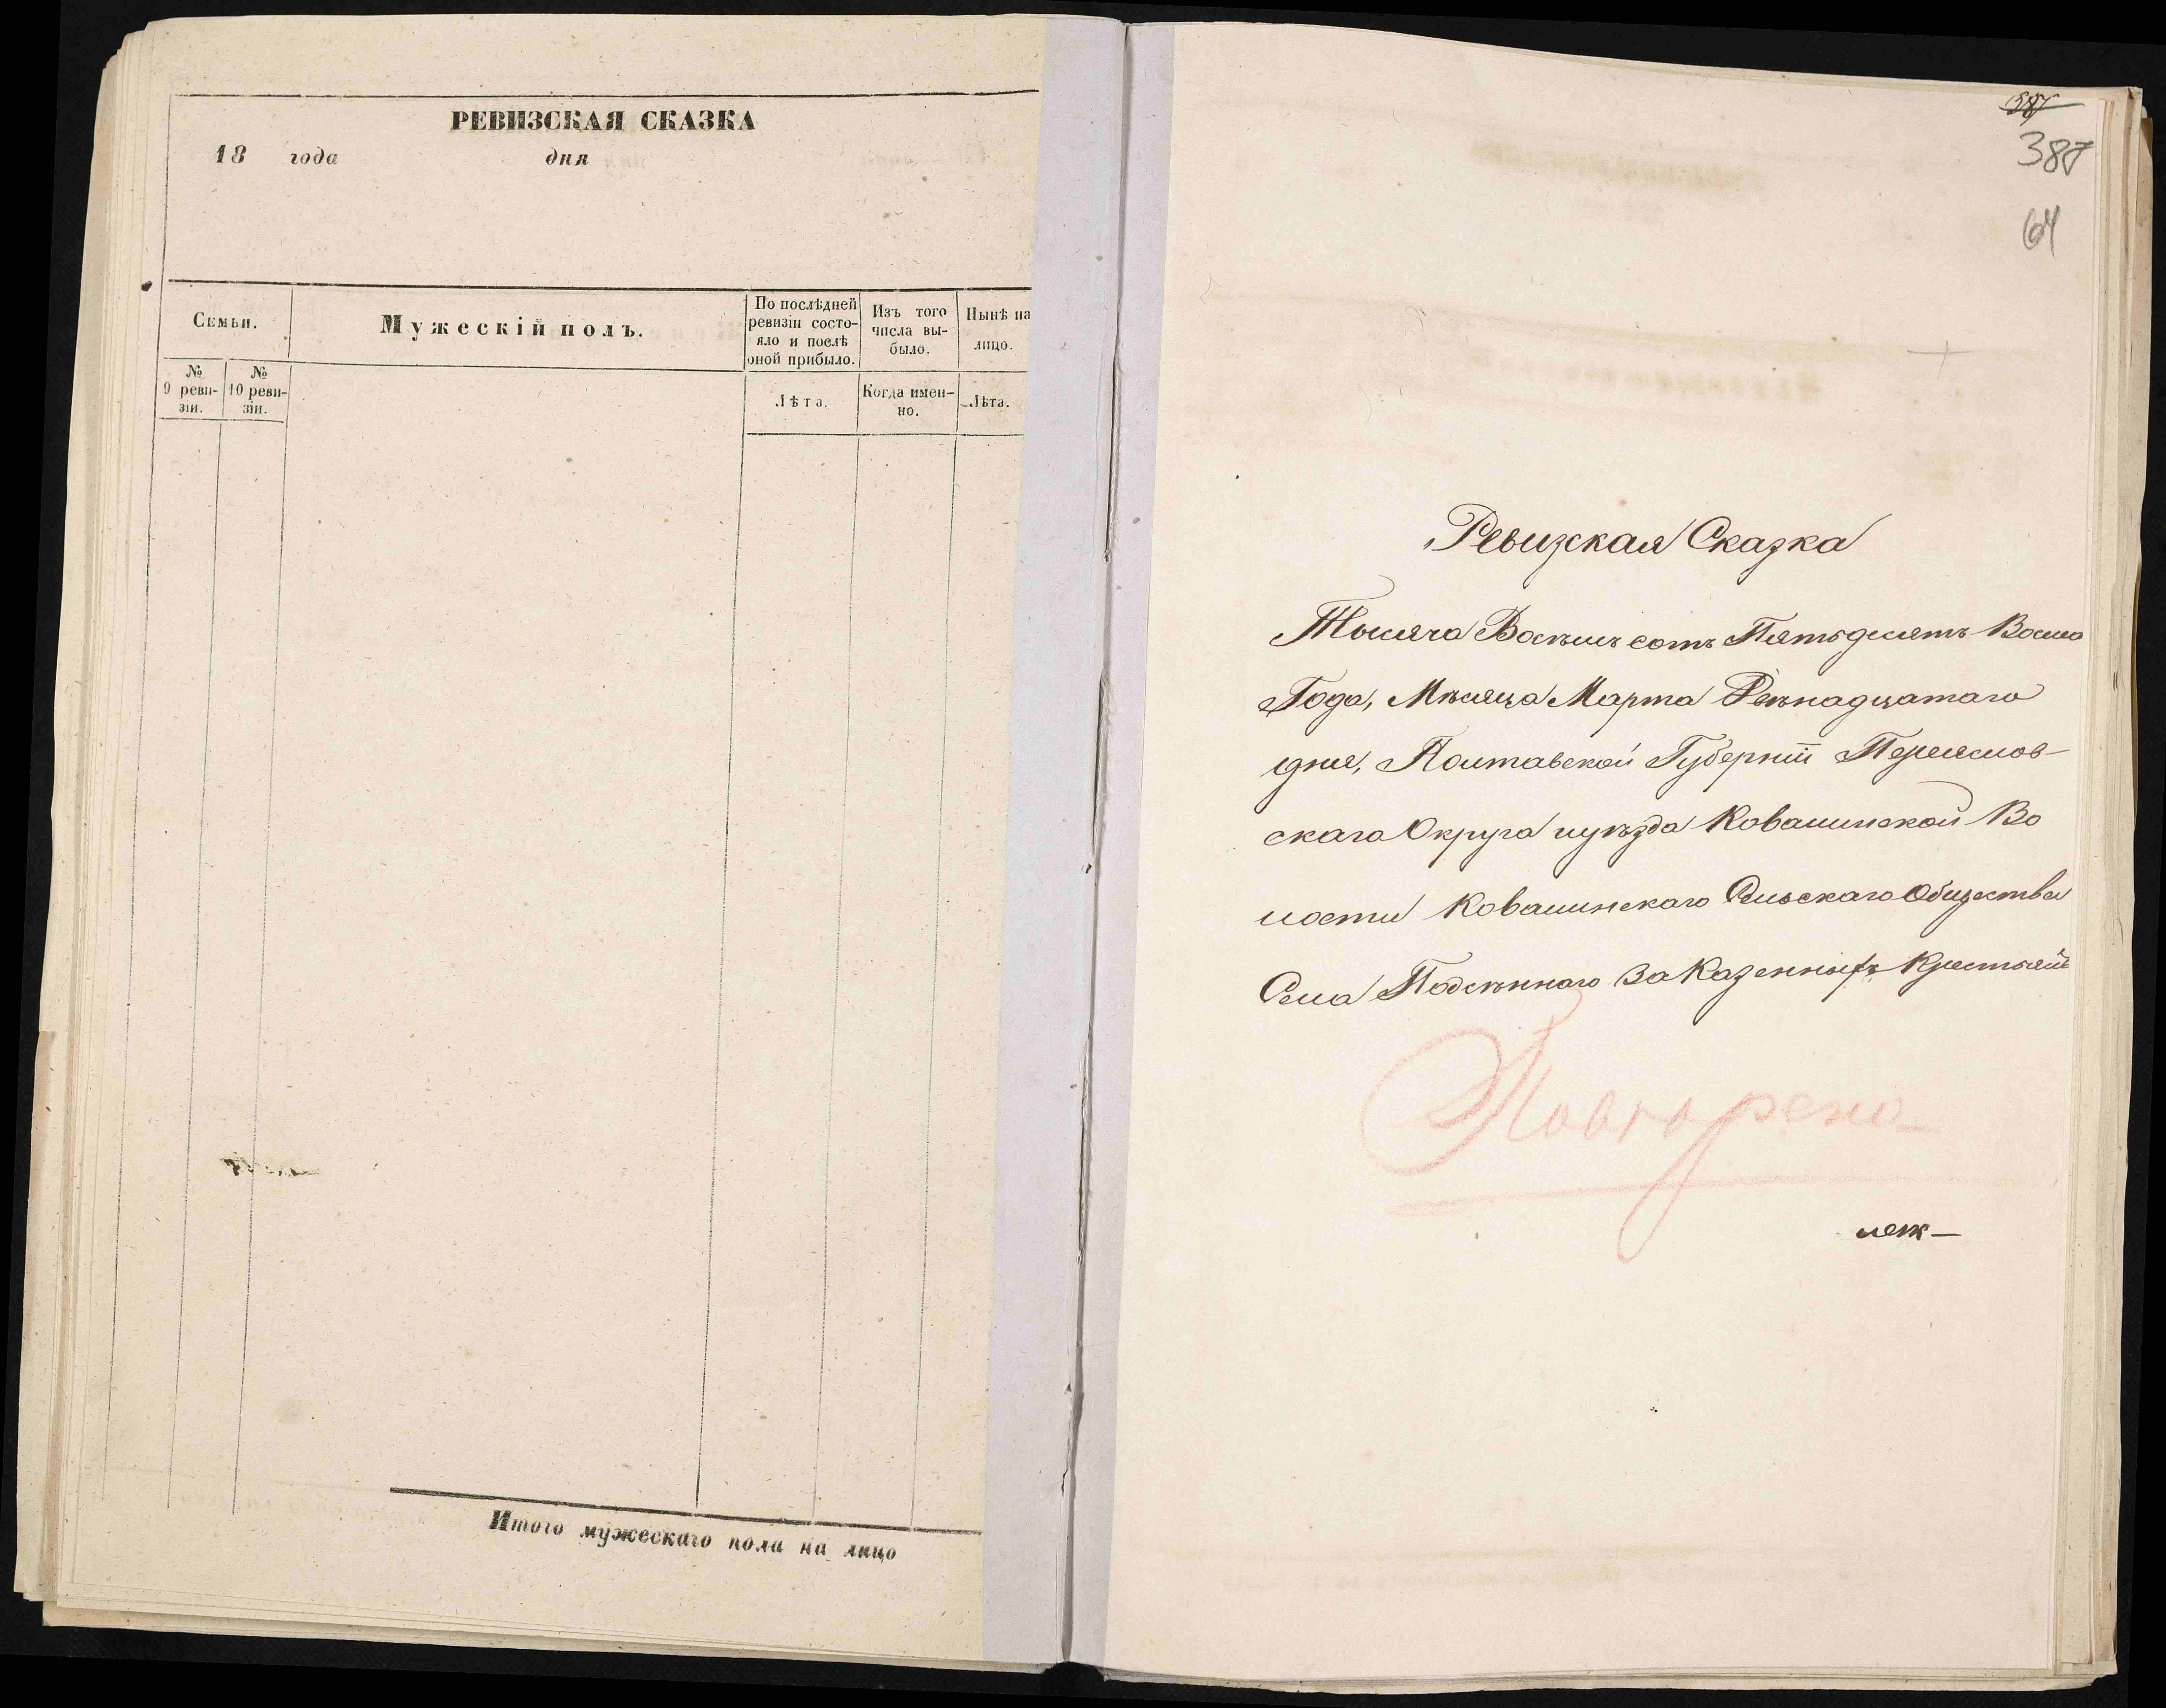 РЕВИЗСКАЯ СКАЗКА
18 года дня
Семьи.
Мужескій полъ.
По послѣдней
ревизіи состо-
яло и послѣ
оной прибыло.
Изъ того
числа вы-
было.
Нынѣ на
лицо.
№
9 реви-
зіи.
№
10 реви-
зіи.
Лѣта.
Когда имен-
но.
Лѣта.
Итого мужескаго пола на лицо
387
64
Ревизская Сказка
Тысяча Восемь сотъ Пятьдесятъ Восмо
Года, Мѣсяца Марта
дня, Полтавской Губерніи Переяслов-
скаго Округа иуѣзда Ковалинской Во
лости Ковалинскаго Сельскаго Общества
Села Подсѣннаго За Казенныхъ Крестьянъ
Повторено
леж-